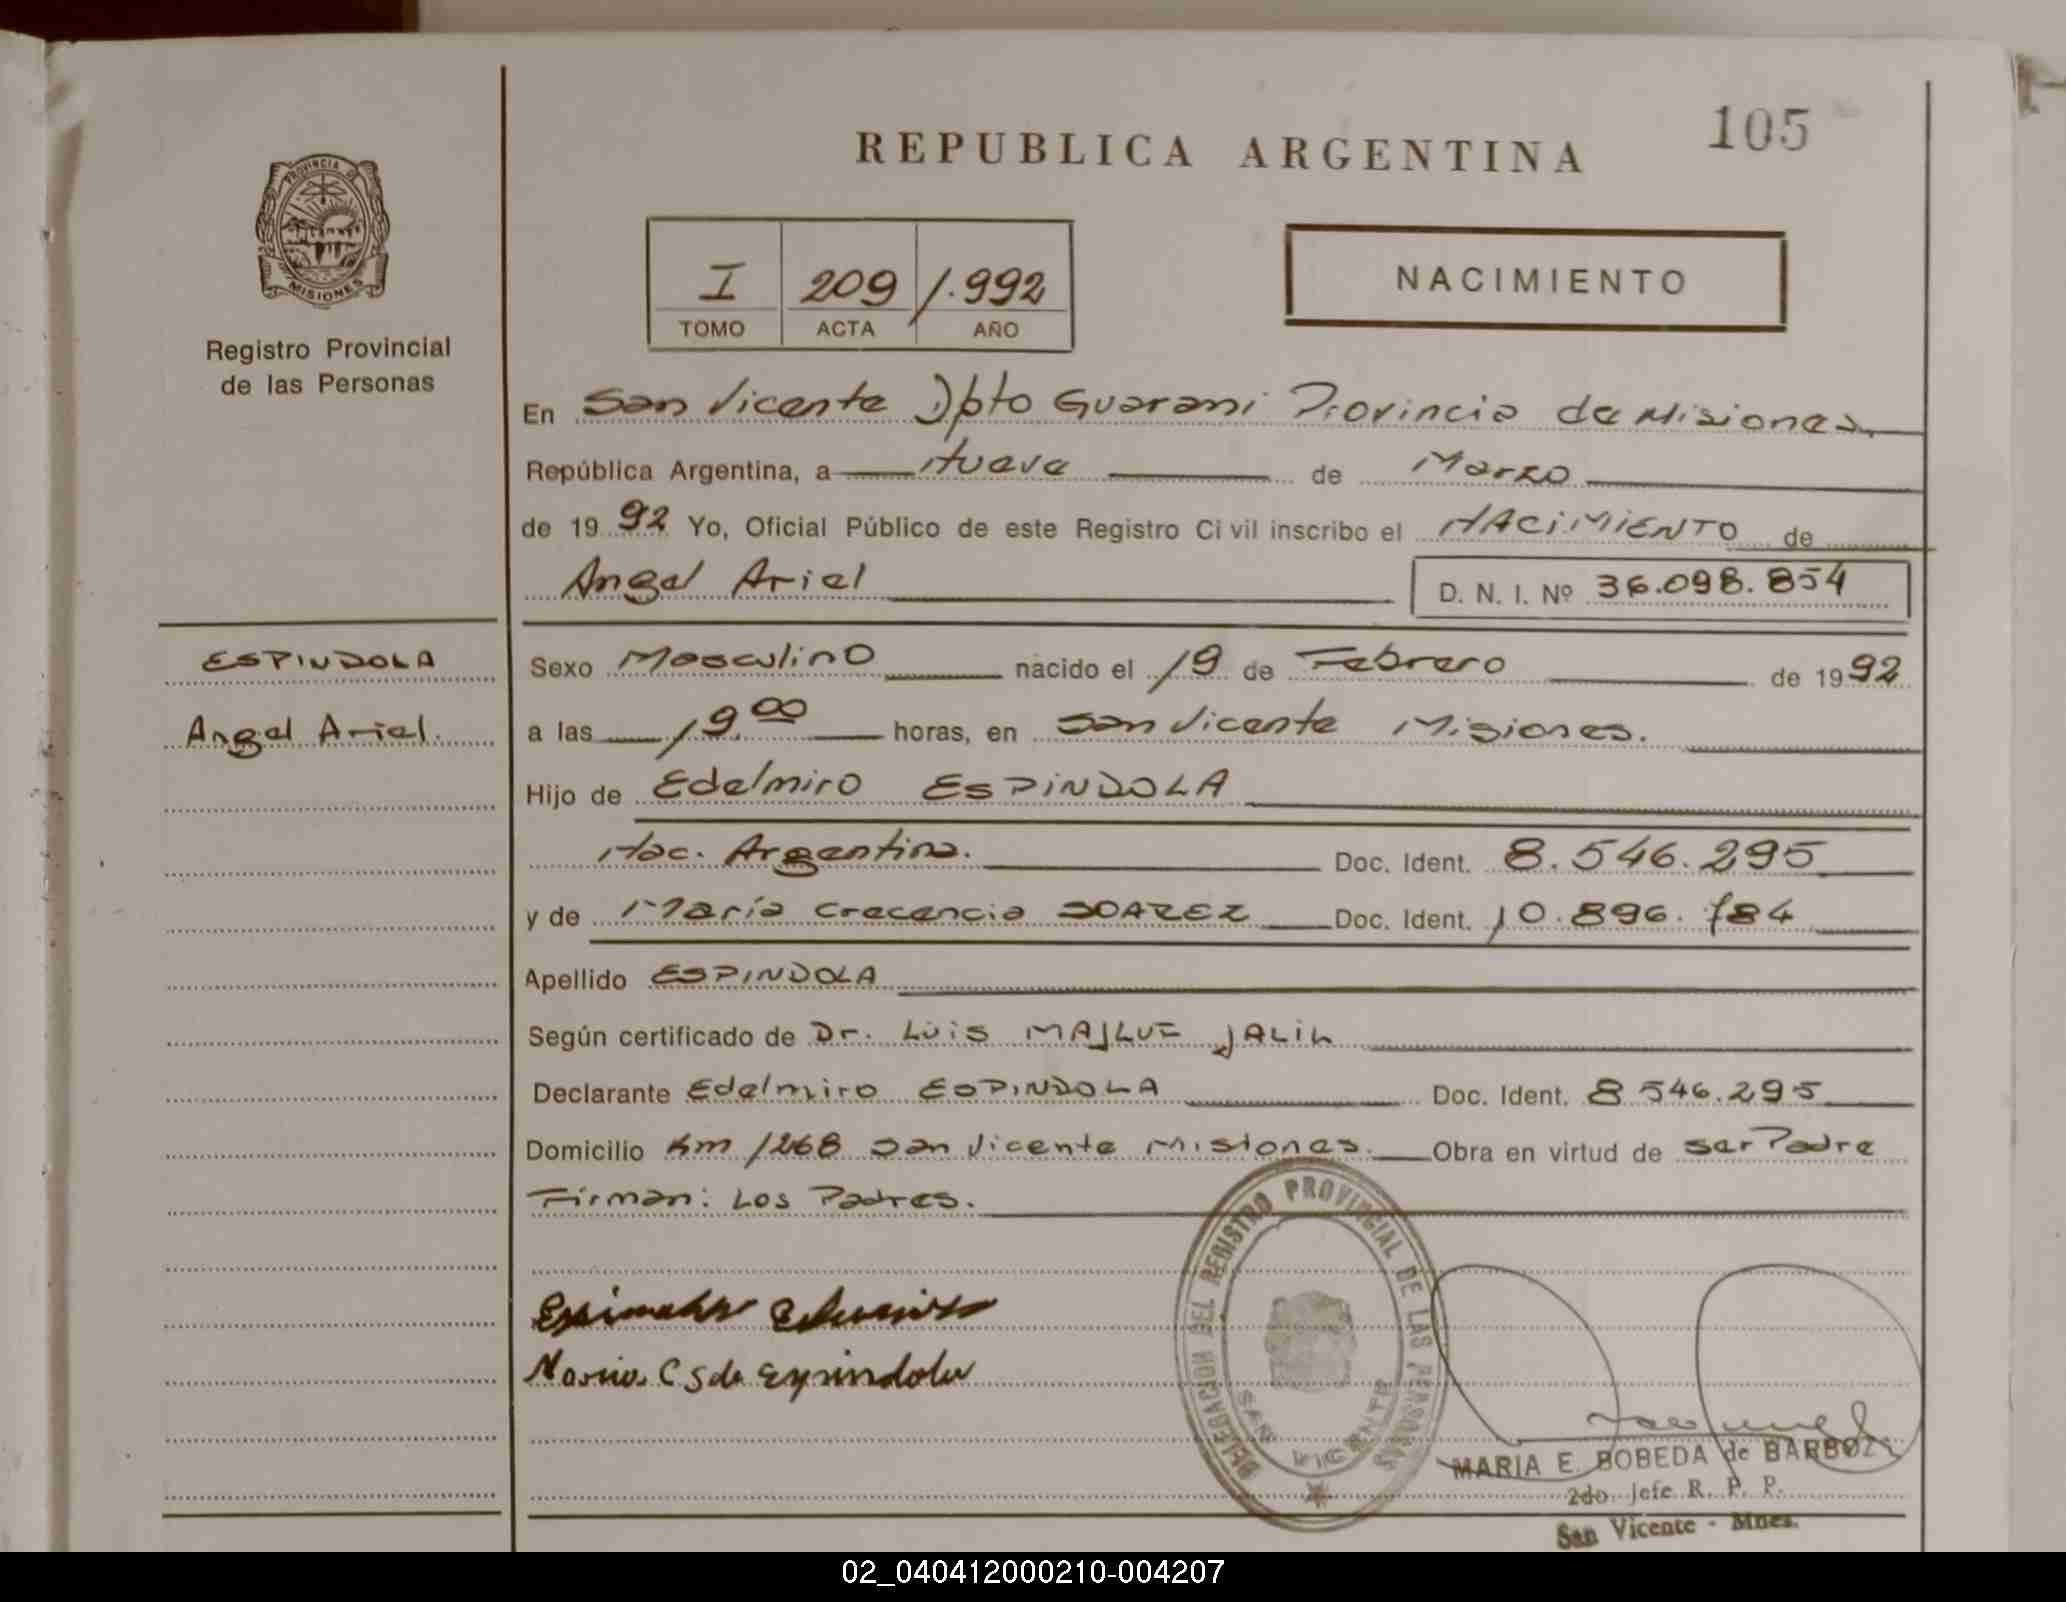 105
REPUBLICA ARGENTINA
PROVINCIA DE
MISIONES
Registro Provincial
de las Personas
I 209 1.992
TOMO ACTA AÑO
NACIMIENTO
En San Vicente Dpto Guarani Provincia de Misiones
República Argentina, a Nueve de Marzo
de 1992 Yo, Oficial Público de este Registro Civil inscribo el NACIMIENTO de
Angel Ariel D. N. I. Nº 36.098.854
ESPINDOLA
Angel Ariel.
Sexo Masculino nacido el 19 de Febrero de 1992
a las 19.00 horas, en San Vicente Misiones.
Hijo de Edelmiro ESPINDOLA
Nac. Argentina. Doc. Ident. 8.546.295
y de María Crecencia SOAREZ Doc. Ident. 10.896.784
Apellido ESPINDOLA
Según certificado de Dr. Luis MAJLUF JALIL
Declarante Edelmiro ESPINDOLA Doc. Ident. 8.546.295
Domicilio Km 1268 San Vicente Misiones. Obra en virtud de ser Padre
Firman: Los Padres.
DELEGACION DEL REGISTRO PROVINCIAL DE LAS PERSONAS
SAN VICENTE
Espindola Edelmiro
Maria C S de Espindola
MARIA E. BOBEDA de BARBOZA
2do. Jefe R. P. P.
San Vicente - Mnes.
02_040412000210-004207